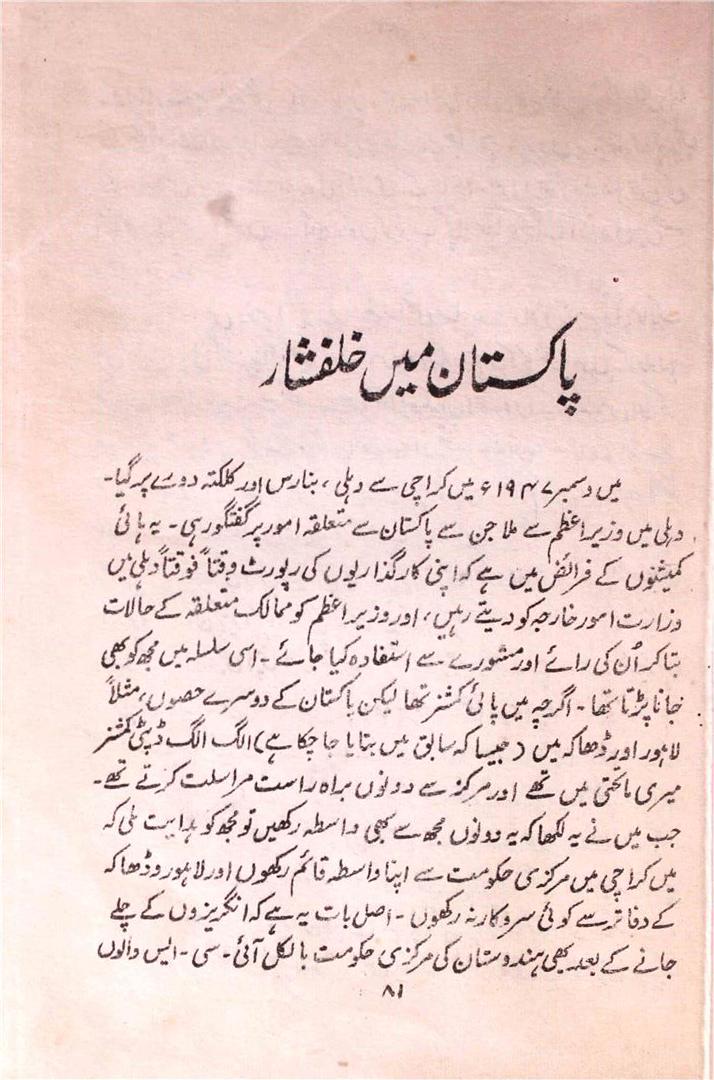 پاکستان میں خلفشار
میں دسمبر ۱۹۴۷ء میں کراچی سے دہلی، بنارس اور کلکتہ دورے پر گیا۔
دہلی میں وزیر اعظم سے ملا جن سے پاکستان سے متعلقہ امور پر گفتگو رہی۔ یہ ہائی
کمیشنوں کے فرائض میں ہے کہ اپنی کارگذاریوں کی رپورٹ وقتاً فوقتاً دہلی میں
وزارت امور خارجہ کو دیتے رہیں، اور وزیر اعظم کو ممالک متعلقہ کے حالات
بتا کر اُن کی رائے اور مشورے سے استفادہ کیا جائے۔ اسی سلسلہ میں مجھ کو بھی
جانا پڑتا تھا۔ اگرچہ میں ہائی کمشنر تھا لیکن پاکستان کے دوسرے حصوں، مثلاً
لاہور اور ڈھاکہ میں (جیسا کہ سابق میں بتایا جا چکا ہے) الگ الگ ڈپٹی کمشنر
میری ماتحتی میں تھے اور مرکز سے دونوں براہ راست مراسلت کرتے تھے۔
جب میں نے یہ لکھا کہ یہ دونوں مجھ سے بھی واسطہ رکھیں تو مجھ کو ہدایت ملی کہ
میں کراچی میں مرکزی حکومت سے اپنا واسطہ قائم رکھوں اور لاہور و ڈھاکہ
کے دفاتر سے کوئی سروکار نہ رکھوں۔ اصل بات یہ ہے کہ انگریزوں کے چلے
جانے کے بعد بھی ہندوستان کی مرکزی حکومت بالکل آئی۔ سی۔ ایس والوں
۸۱